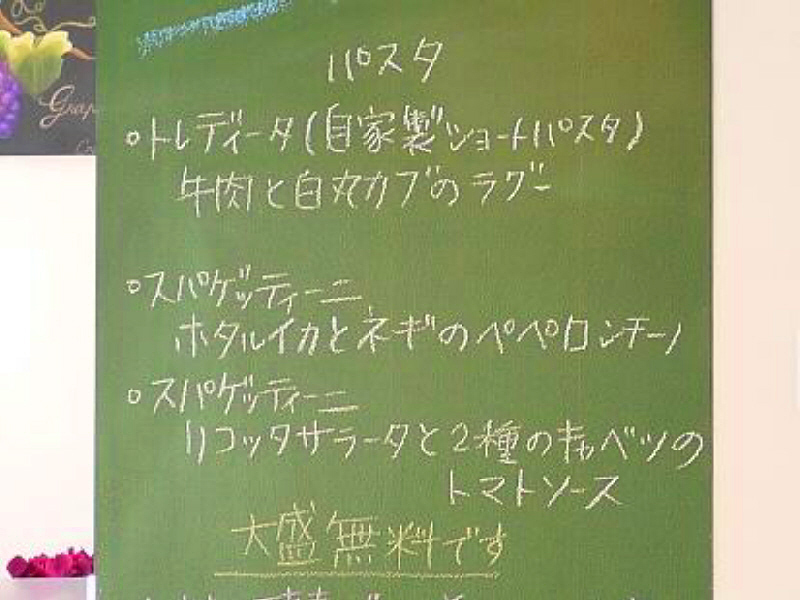 パスタ
○トレディータ(自家製ショートパスタ)
牛肉と白丸カブのラグー
○スパゲッティーニ
ホタルイカとネギのペペロンチーノ
○スパゲッティーニ
リコッタサラータと2種のキャベツの
トマトソース
大盛無料です